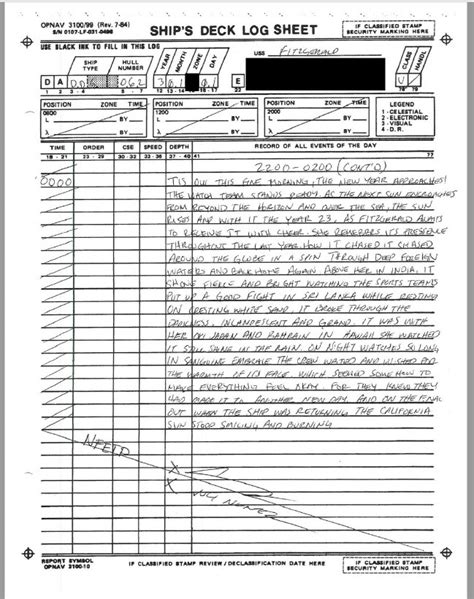 OPNAV 3100/99 (Rev. 7-84)
S/N 0107-LF-031-0498
SHIP'S DECK LOG SHEET
IF CLASSIFIED STAMP
SECURITY MARKING HERE
USE BLACK INK TO FILL IN THIS LOG
USS FITZGERALD
SHIP TYPE
HULL NUMBER
YEAR
MONTH
ZONE
DAY
CLASS
HANDL
D A 062
E
U
POSITION ZONE TIME
0800
L BY
λ BY
POSITION ZONE TIME
1200
L BY
λ BY
POSITION ZONE TIME
2000
L BY
λ BY
LEGEND
1 - CELESTIAL
2 - ELECTRONIC
3 - VISUAL
4 - D.R.
TIME ORDER CSE SPEED DEPTH RECORD OF ALL EVENTS OF THE DAY
18 - 21 23 - 29 30 - 32 33 - 36 37 - 40 41 77
2200-0200 (CONT'D)
0000 'TIS OUI THIS FINE MORNING, THE NEW YEAR APPROACHES!
THE WATCH TEAM STANDS READY. AS THE NEXT SUN ENCROACHES
FROM BEYOND THE HORIZON AND OVER THE SEA, THE SUN
RISES AND WITH IT THE YEAR 23, AS FITZGERALD AWAITS
TO RECEIVE IT WITH CHEER. SHE REMEMBERS IT'S PRESENCE
THROUGHOUT THE LAST YEAR. HOW IT CHASED IT CHASED
AROUND THE GLOBE IN A SPIN THROUGH DEEP FOREIGN
WATERS AND BACK HOME AGAIN. ABOVE HER IN INDIA, IT
SHONE FIERCE AND BRIGHT WATCHING THE SPORTS TEAMS
PUT UP A GOOD FIGHT IN SRI LANKA WHILE RESTING
ON CRESTING WHITE SAND. IT BROKE THROUGH THE
DARKNESS, INCANDESCENT AND GRAND. IT WAS WITH
HER BY JAPAN AND BAHRAIN IN HAWAII SHE WATCHED
IT STILL SHINE IN THE RAIN. ON NIGHT WATCHES SO LONG
IN SANGUINE EMBRACE THE CREW WAITED AND WISHED FOR
THE WARMTH OF IT'S FACE WHICH SEEMED SOMEHOW TO
MAKE EVERYTHING FEEL OKAY. FOR THEY KNEW THEY
HAD MADE IT TO ANOTHER NEW DAY. AND ON THE FINAL
OUT WHEN THE SHIP WAS RETURNING THE CALIFORNIA
SUN STOOD SMILING AND BURNING
NFETP
X
X
REPORT SYMBOL
OPNAV 3100-10
IF CLASSIFIED STAMP REVIEW / DECLASSIFICATION DATE HERE
IF CLASSIFIED STAMP
SECURITY MARKING HERE